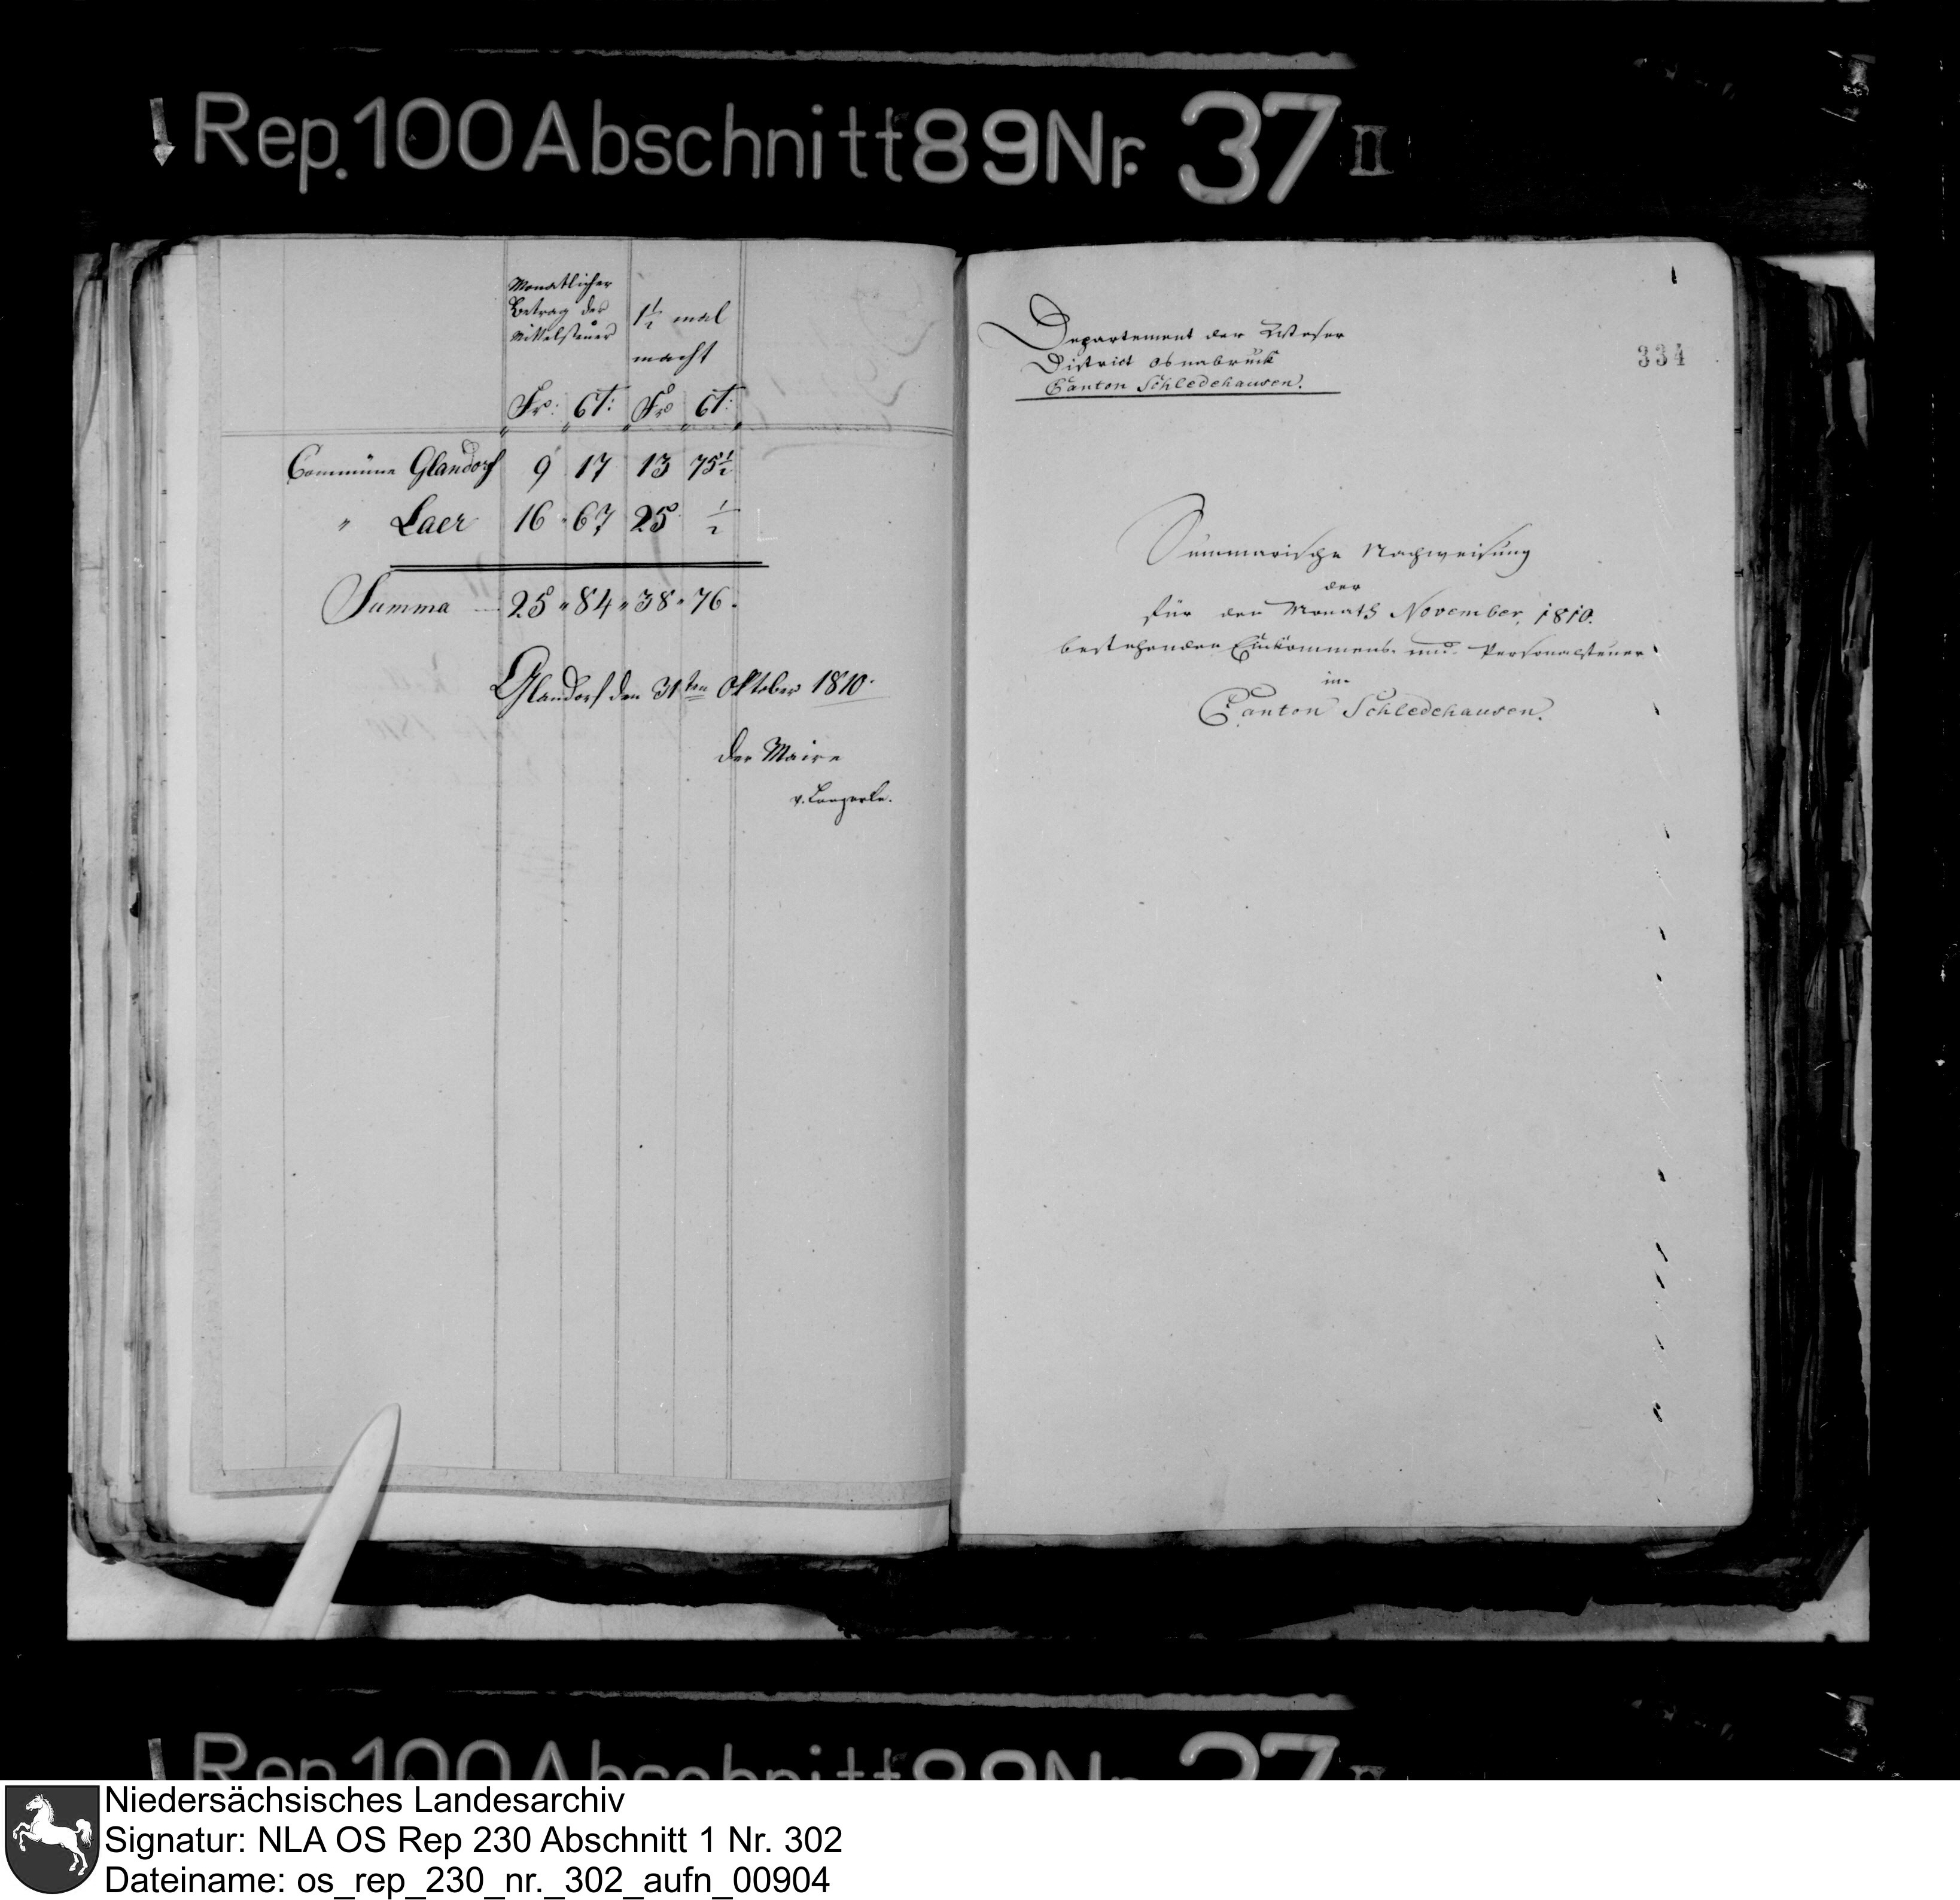 Rep. 100 Abschnitt 89 Nr. 37 II
Monatlicher
Betrag der
Mittelsteuer
1½ mal
macht
Fr: Ct: Fr Ct:
Commüne Glandorf 9 17 13 75½
" Laer 16 67 25 ½
Summa 25 " 84 " 38 " 76.
Glandorf den 31ten Oktober 1810.
Der Maire
1
Departement der Weser
District Osnabrück
Canton Schledehausen.
334
Summarische Nachweisung
der
für den Monath November, 1810.
bestehenden Einkommens- und Personalsteuer
in
Canton Schledehausen.
Rep. 100 Abschnitt 89 Nr. 37 II
Niedersächsisches Landesarchiv
Signatur: NLA OS Rep 230 Abschnitt 1 Nr. 302
Dateiname: os_rep_230_nr._302_aufn_00904